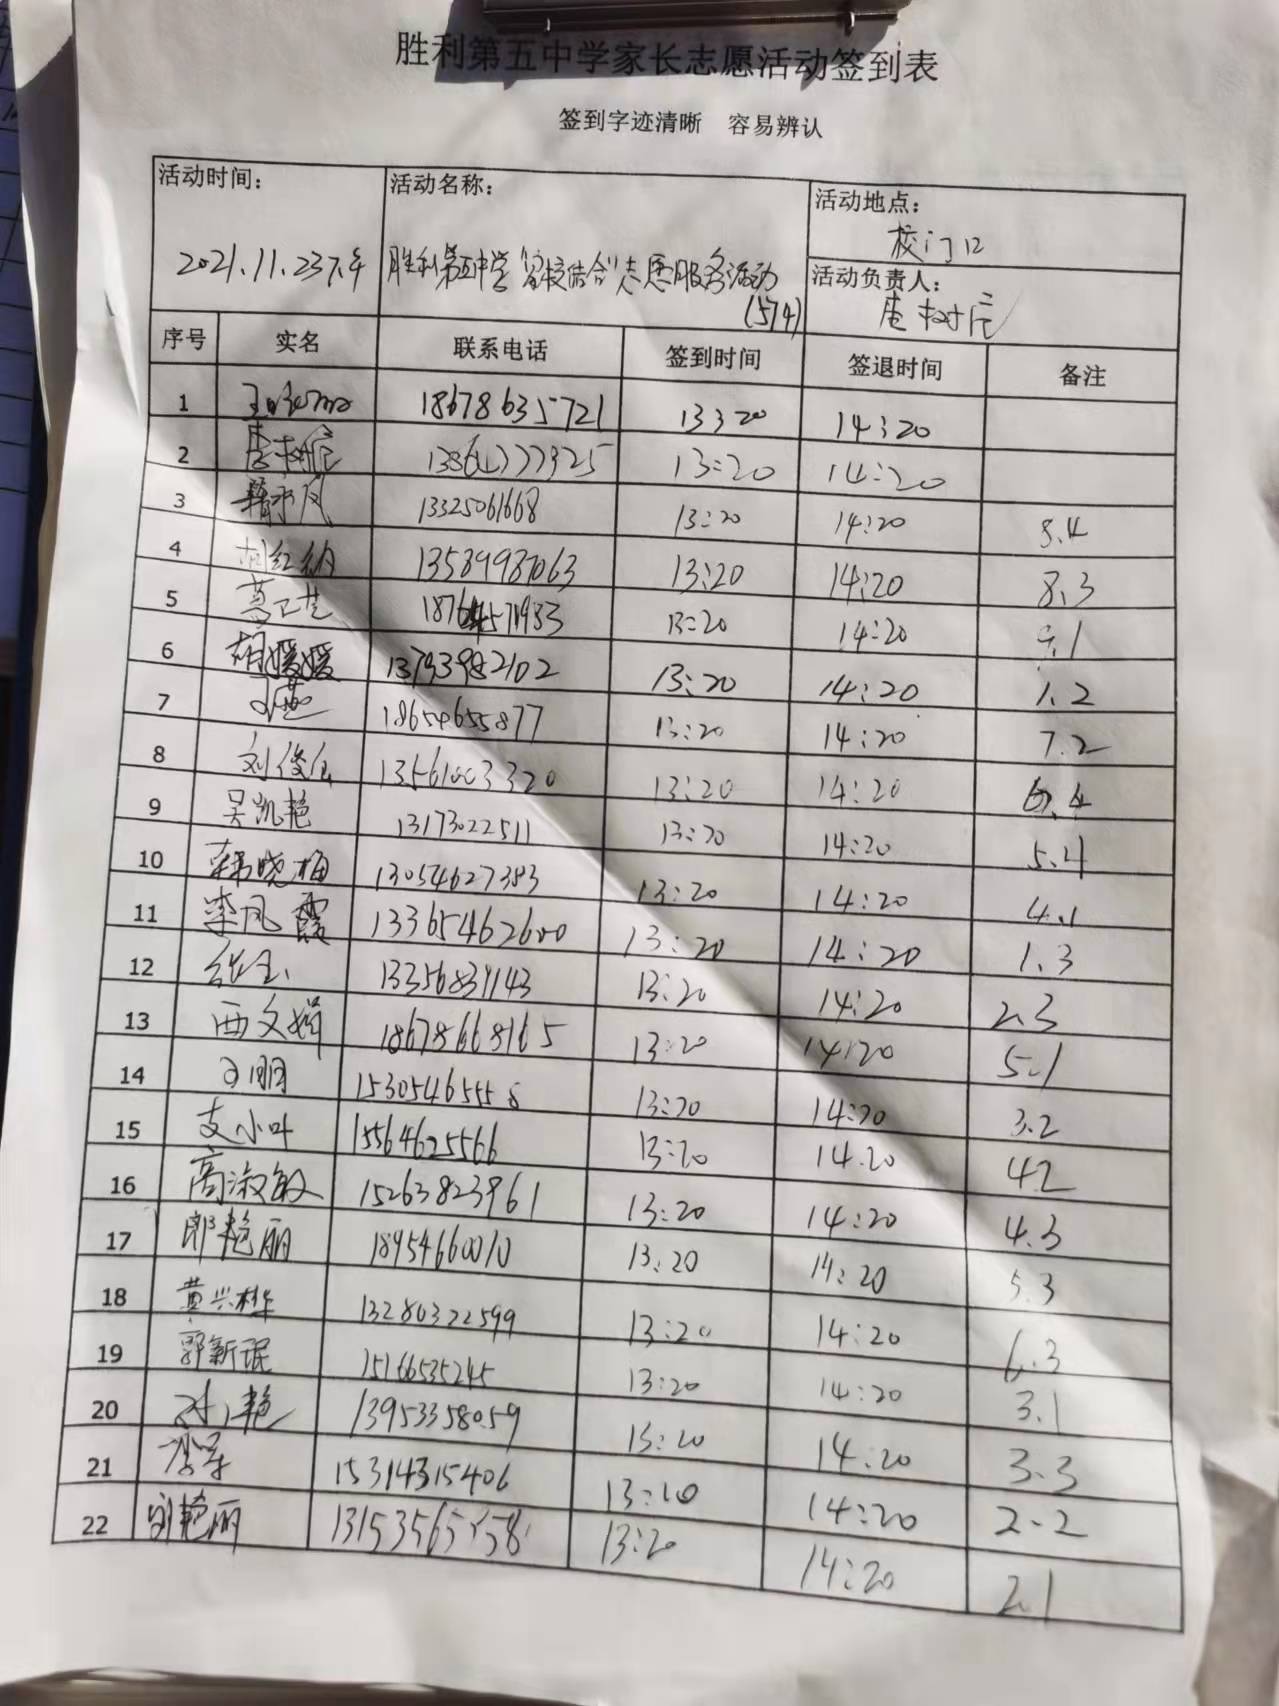 胜利第五中学家长志愿活动签到表
签到字迹清晰 容易辨认
活动时间: 活动名称: 活动地点:
校门口
2021.11.23下午 胜利第五中学"家校结合"志愿服务活动
(574)
活动负责人:
序号 实名 联系电话 签到时间 签退时间 备注
1 18678635721 13:20 14:20
2 13:20 14:20
3 13325061668 13:20 14:20 8.4
4 13589987063 13:20 14:20 8.3
5 13:20 14:20
6 胡媛媛 13793982102 13:20 14:20 1.2
7 18654655877 13:20 14:20 7.2
8 13561003320 13:20 14:20
9 吴凯艳 13173022511 13:20 14:20 5.4
10 韩晓梅 13054627383 13:20 14:20 4.1
11 李凤霞 13365462600 13:20 14:20 1.3
12 13:20 14:20 2.3
13 西文娟 18678668165 13:20 14:20 5.1
14 15305465558 13:20 14:20 3.2
15 支小叶 15564625566 13:20 14.20 4.2
16 高淑敏 15263823961 13:20 14:20 4.3
17 郎艳丽 18954660010 13:20 14:20 5.3
18 13280322599 13:20 14:20 6.3
19 郭新琨 15166535245 13:20 14:20 3.1
20 13953358059 13:20 14:20 3.3
21 15314315406 13:20 14:20 2.2
22 刘艳丽 13:20 14:20 2.1